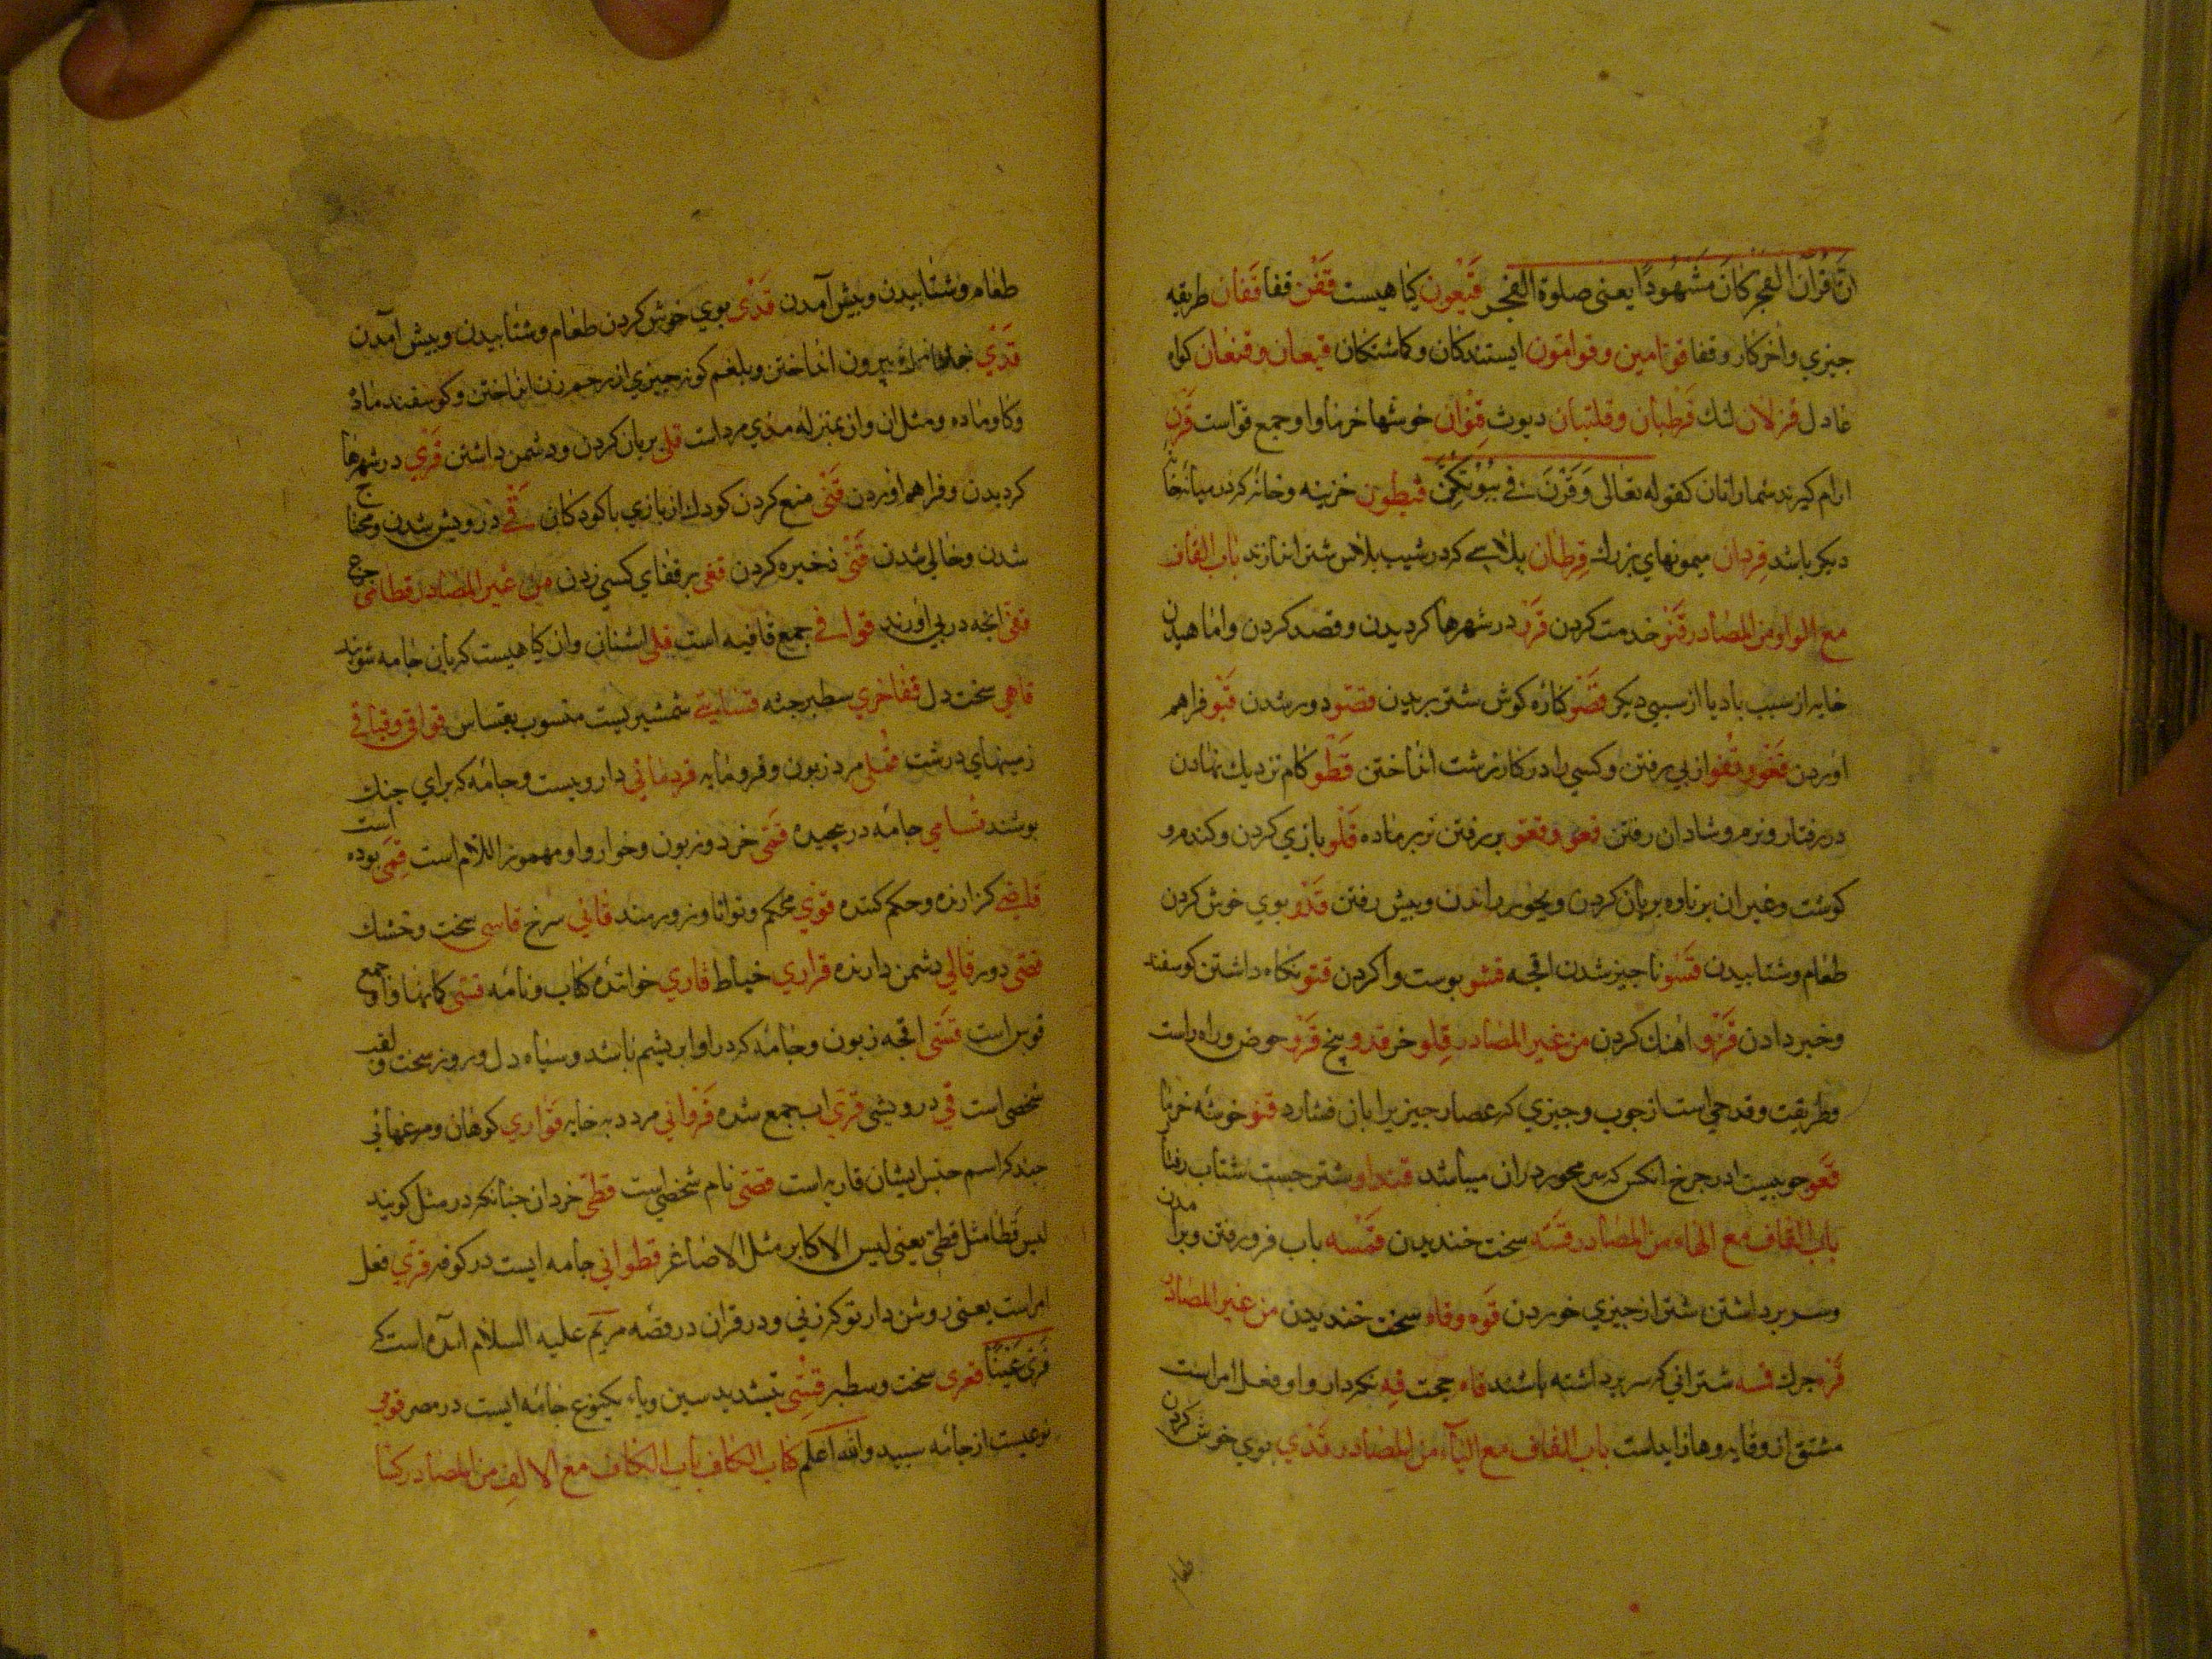 ان قرآن الفجر كان مشهودا يعنى صلوة الفجر قيعون كياهيست قفن قفا قفان طريقه
جيزي واخر كار و قفا قوامين و قوامون ايستندكان و كماشتكان قيعان و قنعان كواه
عادل قزلان لنك قرطبان و قلتبان ديوث قنوان خوشها خرما و او جمع قنو است قرن
ارام كيريد شما زنان كقوله تعالى وقرن فى بيوتكن قيطون خزينه و خانه كه در ميان خانه
ديكر باشد قردان ميمونهاي بزرك قرطان پلاسے كه در شيب پلاس شتر اندازند باب القاف
مع الواو من المصادر قنو خدمت كردن قرو در شهرها كرديدن و قصد كردن و اماهيدن
خايه از سبب باد يا از سببي ديكر قصو كناره كوش شتر بريدن قصو دور شدن قبو فراهم
اوردن قفو و قفو از پي رفتن و كسي را در كار زشت انداختن قطو كام نزديك نهادن
در رفتار و نرم و شادان رفتن قعو و قعو بر رفتن نر بر ماده قلو بازي كردن و كندم و
كوشت و غير ان بر تاوه بريان كردن و بجور راندن و پيش رفتن قدو بوي خوش كردن
طعام و شتابيدن قسو ناجيز شدن اقجه قشو پوست واكردن قنو نكاه داشتن كوسفند
و خبر دادن قرو اهنك كردن من غير المصادر قلو خر قدو بيخ قرو حوض و راه راست
و طريقت و قدحي است از جوب و جيزي كه عصار جيز را بان فشارد قنو خوشه خرما
قعو جوبيست در جرخ انكس كه سر محور در ان ميباشد قنداو شتر جست شتاب رفتار
باب القاف مع الهاء من المصادر قسه سخت خنديدن قمسه باب فرو رفتن و برامدن
و سر برداشتن شتر از جيزي خوردن قوه وقاه سخت خنديدن من غير المصادر
قره جرك قمه شتراني كه سر برداشته باشند قاه حجت قه نكردار و او فعل امر است
مشتق از وقايه و ها زايد است باب القاف مع الياء من المصادر قدي بوي خوش كردن
طعام
طعام و شتابيدن و پيش آمدن قدى بوي خوش كردن طعام و شتابيدن و پيش آمدن
قذي بيرون انداختن و بلغم كونه جيزي از رحم زن انداختن و كوسفند ماده
و كاو ماده و مثل ان و ان بمنزله مذي مرد است قلي بريان كردن و دشمن داشتن قري در شهرها
كرديدن و فراهم اوردن قنى منع كردن كودك از بازي با كودكان قي درويش شدن و محتاج
شدن و خالي شدن قنى ذخيره كردن قفى بر قفاي كسي زدن من غير المصادر قطامى جرغ
قفى انجه در پي اورند قوافى جمع قافيه است قلى اشنان و ان كياهيست كه بان جامه شويند
قاهي سخت دل قفاخري سطبر جثه قساسي شمشيريست منسوب بقساس قواقي و قياقي
زمينهاي درشت قملي مرد زبون و فرومايه قردماني داروييست و جامه كه براي جنك
پوشند قسامي جامه در پيچيده قمى خرد و زبون و خوار و او مهموز اللام است قمى بوده است
قاضى كزارنده و حكم كننده قوي محكم و توانا و زورمند قاني سرخ قاسي سخت و خشك
قصى دور قالي دشمن دارنده قراري خياط قاري خواننده كتاب و نامه قسى كمانها و او جمع
قوس است قسى اقجه زبون و جامه كه در او ابريشم باشد و سياه دل و روز سخت و لقب
شخصي است قي درويشي قري اب جمع شده قرواني مرد دبه خايه قواري كوهان و مرغهائي
جند كه اسم جنس ايشان قاريه است قصى نام شخصي است قطي خردان جنانكه در مثل كويند
ليس قطا مثل قطي يعني ليس الاكابر مثل الاصاغر قطواني جامه ايست در كوفه قري فعل
امر است يعنى روشن دار تو كه زني و در قران در قصه مريم عليه السلام آمده است كه
قري عينا قعرى سخت و سطبر قسي بتشديد سين و ياء يكنوع جامه ايست در مصر قوهي
نوعيست از جامه سپيد والله اعلم كتاب الكاف باب الكاف مع الالف من المصادر كنا